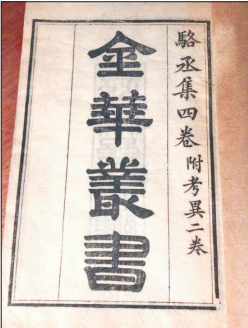 駱丞集四卷附考異二卷
金華叢書